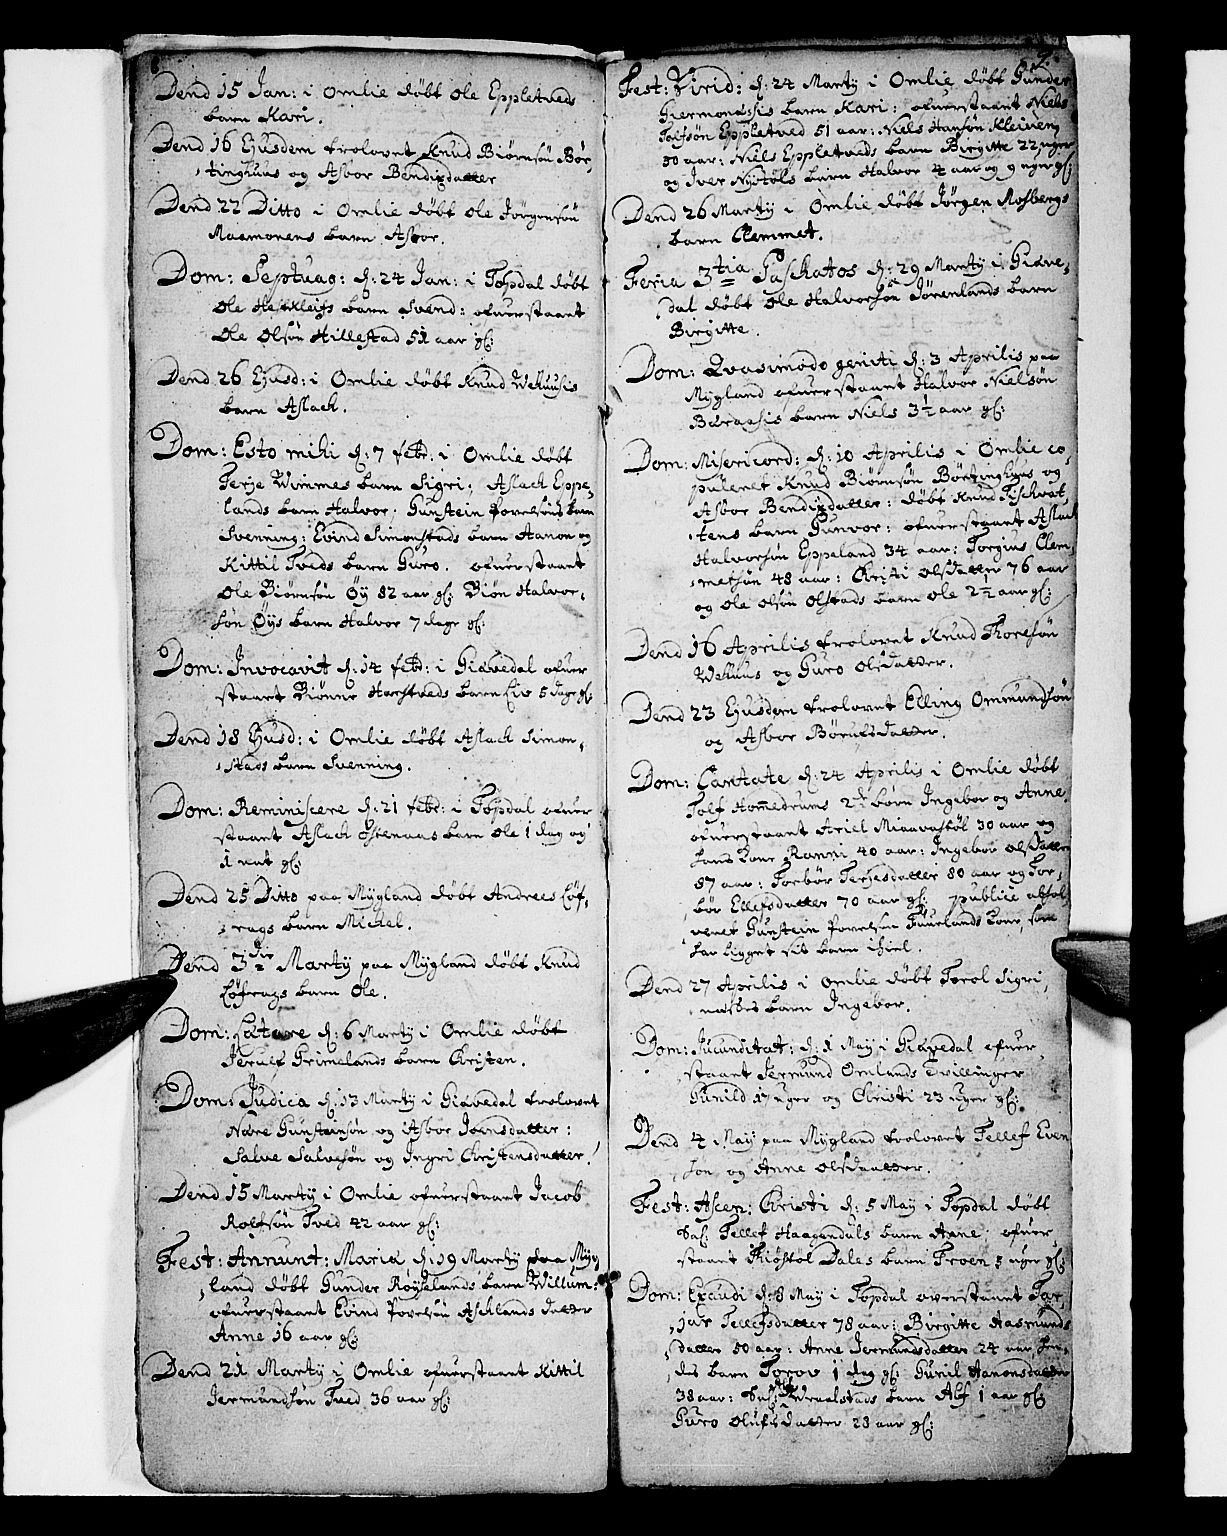 Dend 15 Jan: i Omlie døbt Ole Eppletveds
barn Kari.
Dend 16 Ejusdem trolovet Knud Biørnsøn Bør,
tinghuus og Asbor Bendixdatter
Dend 22 Ditto i Omlie døbt Ole Jørgensøn
barn Asbor.
Dom: Septuag: d: 24 Jan: i Topdal døbt
Ole barn Svend: ofuerstaaet
Ole Olsøn Hillestad 51 aar gl:
Dend 26 Ejusd: i Omlie døbt Knud Wehuusis
barn Aslack.
Dom: Esto mihi d: 7 febr: i Omlie døbt
Terje Wimmes barn Sigri; Aslach Eppe,
lands barn Halvor: Gunstein Povelsøns barn
Svenning: Evind Simonstads barn Aanon og
Kittil Tveds barn Guro. ofuerstaaet
Ole Biørnsøn Øy 82 aar gl: Biøn Halvor,
søn Øys barn Halvor 7 dage gl:
Dom: Invocavit d: 14 febr: i Giøvedal ofuer
staaet Biønne barn Liv 5 dage gl:
Dend 18 Ejusd: i Omlie døbt Aslach Simon,
stads barn Svenning.
Dom: Reminiscere d: 21 febr: i Topdal ofuer
staaet Aslach barn Ole 1 dag og
1 nat gl:
Dend 25 Ditto paa Mygland døbt Andrees Løf,
rags barn Michel.
Dend 3die Martij paa Mygland døbt Knud
Løfrags barn Ole.
Dom: Lætare d: 6 Martij i Omlie døbt
Jerulf Grimelands barn Christen.
Dom: Judica d: 13 Martij i Giøvedal trolovet
Gunsteinsøn og Asbor Joensdatter:
Salve Salvesøn og Ingri Christensdatter.
Dend 15 Martij i Omlie ofuerstaaet Jacob
Rolfsøn Tved 42 aar gl:
Fest: Annunt: Mariæ d: 19 Martij paa Myg,
land døbt Gunder Røyselands barn Willum:
ofuerstaaet Evind Povelsøn Askelands datter
Anne 16 aar gl:
Dend 21 Martij i Omlie ofuerstaaet Kittil
Jermundsøn Tved 36 aar gl:
2.
Fest: Virid: d: 24 Martij i Omlie døbt Gunder
barn Kari: ofuerstaaet Niels
Tolfsøn Eppletved 51 aar: Niels Hansøn Kleiven
30 aar: Niels Eppletveds barn Birgitte 22 uger
og Iver barn Halvor 4 aar og 9 uger gl:
Dend 26 Martij i Omlie døbt Jørgen Mosbergs
barn Clemmet.
Feria 3tia Paschatos d: 29 Martij i Giøve,
dal døbt Ole Halvorsøn Jørenlands barn
Birgitte.
Dom: Qvasimodo geniti d: 3 Aprilis paa
Mygland ofuerstaaet Halvor Nielsøn
barn Niels 3½ aar gl:
Dom: Misericord: d: 10 Aprilis i Omlie co,
puleret Knud Biørnsøn Børtinghuus og
Asbor Bendixdatter: døbt Knud Fischvat,
tens barn Gunvor: ofuerstaaet Aslack
Halvorsøn Eppeland 34 aar: Torgius Clem,
metsøn 48 aar: Christi Olsdatter 76 aar
og Ole Olsøn Olstads barn Ole 2½ aar gl:
Dend 16 Aprilis trolovet Knud Thoresøn
Wehuus og Guro Olsdatter.
Dend 23 Ejusdem trolovet Elling Ommundsøn
og Asbor Børulsdatter.
Dom: Cantate d: 24 Aprilis i Omlie døbt
Tolf Hommedrums 2 børn Ingebor og Anne.
ofuerstaaet Ariel Miaavastøl 30 aar og
hans Kone Ranni 40 aar: Ingebor Olsdatter
87 aar: Torbør Terjesdatter 80 aar og Tor,
bør Ellefsdatter 70 aar gl: publicè absol,
veret Gunstein Povelsen Fuurlands Kone, som
har ligget sit barn ihiel.
Dend 27 Aprilis i Omlie døbt Torol Sigri,
barn Ingebor.
Dom: Jucunditat: d: 1 Maij i Giøvedal ofuer,
staaet Jermund Omlands Tvillinger
Gunild 17 uger og Christi 23 uger gl:
Dend 4 Maij paa Mygland trolovet Tellef Even
søn og Anne Olsdaatter.
Fest: Ascen: Christi d: 5 Maij i Topdal døbt
Sal: Tellef Haagendals barn Anne: ofuer
staaet Thiøstol Dales barn Troen 5 uger gl:
Dom: Exaudi d: 8 Maij i Topdal overstaaet Tar,
jær Tellefsdatter 78 aar: Birgitte Aasmunds
datter 50 aar: Anne Jermundsdatter 24 aar hen,
des barn Torov 1 dag gl: Gunil Aanonsdatter
38 aar: Sal: barn Alf 1 aar gl:
Guro Olufsdatter 23 aar gl: